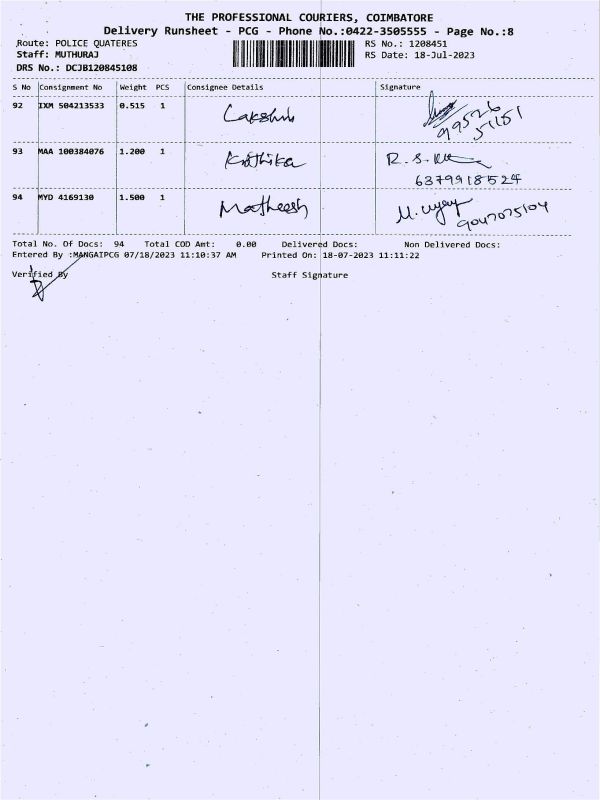 THE PROFESSIONAL COURIERS, COIMBATORE
Delivery Runsheet - PCG - Phone No.:0422-3505555 - Page No.:8
Route: POLICE QUATERES RS No.: 1208451
Staff: MUTHURAJ RS Date: 18-Jul-2023
DRS No.: DCJB120845108
S No Consignment No Weight PCS Consignee Details Signature
92 IXM 504213533 0.515 1 Lakshmi
99526
93 MAA 100384076 1.200 1 Krithika R. S.
6379918524
94 MYD 4169130 1.500 1 Matheesh M.
Total No. Of Docs: 94 Total COD Amt: 0.00 Delivered Docs: Non Delivered Docs:
Entered By :MANGAIPCG 07/18/2023 11:10:37 AM Printed On: 18-07-2023 11:11:22
Verified By Staff Signature